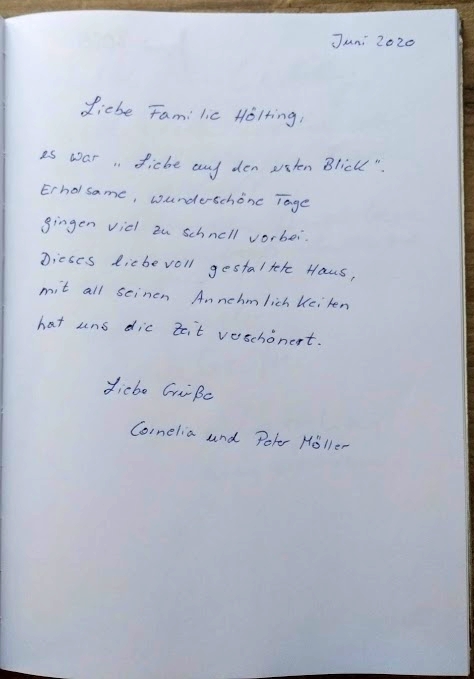 Juni 2020
Liebe Familie Hölting,
es war „Liebe auf den ersten Blick".
Erholsame, wunderschöne Tage
gingen viel zu schnell vorbei.
Dieses liebevoll gestaltete Haus,
mit all seinen Annehmlichkeiten
hat uns die Zeit verschönert.
Liebe Grüße
Cornelia und Peter Möller